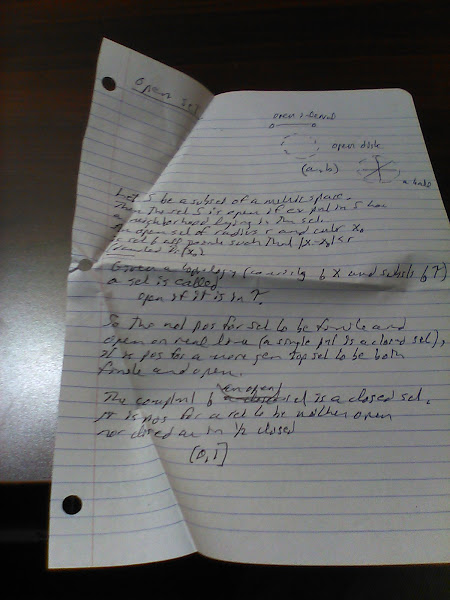 Open Set
open interval
open disk
(a, b)
a ball
Let S be a subset of a metric space.
Then the set S is open if ev pnt in S has
a neighborhood lying in the set.
An open set of radius r and cntr x₀
is set of all points such that |x-x₀| ≤ r
x₀)
Given a topology (consisting of X and subsets of T)
a set is called
open if it is in T.
So tho not pos for set to be finite and
open on real line (a single pnt is a closed set),
it is pos for a more gen top set to be both
finite and open.
an open
The complmt of set is a closed set.
It is pos for a set to be neither open
nor closed as in ½ closed
(0,1]